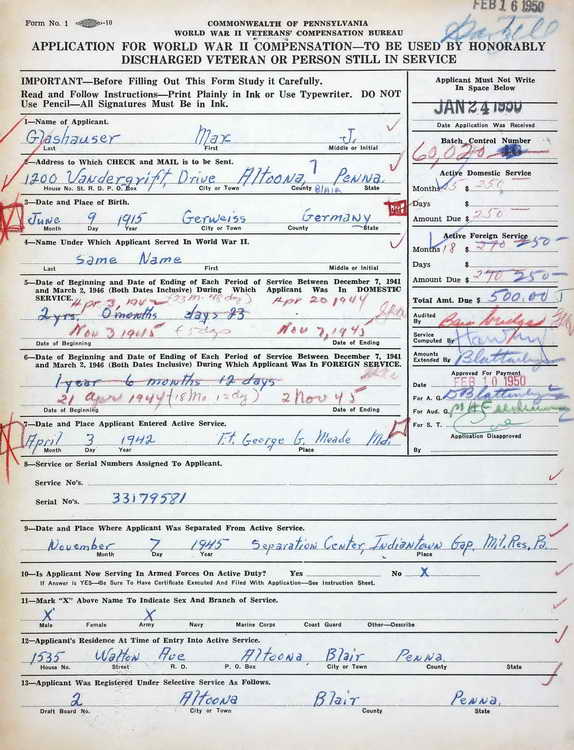 Form No. 1 -10
FEB 16 1950
COMMONWEALTH OF PENNSYLVANIA
WORLD WAR II VETERANS' COMPENSATION BUREAU
APPLICATION FOR WORLD WAR II COMPENSATION—TO BE USED BY HONORABLY
DISCHARGED VETERAN OR PERSON STILL IN SERVICE
IMPORTANT—Before Filling Out This Form Study it Carefully.
Read and Follow Instructions—Print Plainly in Ink or Use Typewriter. DO NOT
Use Pencil—All Signatures Must Be in Ink.
Applicant Must Not Write
In Space Below
JAN 24 1950
Date Application Was Received
Batch Control Number
60,020
1—Name of Applicant.
Glashauser Max J.
Last First Middle or Initial
2—Address to Which CHECK and MAIL is to be Sent.
1200 Vandergrift, Drive Altoona, Penna.
House No. St. R. D. P. O. Box City or Town County BLAIR State
Active Domestic Service
Months 5 $ 250-
Days $
Amount Due $ 250-
3—Date and Place of Birth.
June 9 1915 Gerweiss Germany
Month Day Year City or Town County State
4—Name Under Which Applicant Served In World War II.
Same Name
Last First Middle or Initial
Active Foreign Service
Months 18 $ 270 250-
Days $
Amount Due $ 270 250-
Total Amt. Due $ 500.00
5—Date of Beginning and Date of Ending of Each Period of Service Between December 7, 1941
and March 2, 1946 (Both Dates Inclusive) During Which Applicant Was In DOMESTIC
SERVICE.
Apr 20 1944
2 yrs, 0 months days 23
Nov 3 1945 5 days Nov 7, 1945
Date of Beginning Date of Ending
6—Date of Beginning and Date of Ending of Each Period of Service Between December 7, 1941
and March 2, 1946 (Both Dates Inclusive) During Which Applicant Was In FOREIGN SERVICE.
1 year 6 months 12 days
21 Apr 1944 (18 Mo 12 dy) 2 Nov 45
Date of Beginning Date of Ending
Audited By
Service Computed By
Amounts Extended By
Approved For Payment
Date FEB 10 1950
For A. G.
For Aud. G.
For S. T.
Application Disapproved
By
7—Date and Place Applicant Entered Active Service.
April 3 1942 Ft. George G. Meade Md.
Month Day Year Place
8—Service or Serial Numbers Assigned To Applicant.
Service No's.
Serial No's. 33179581
9—Date and Place Where Applicant Was Separated From Active Service.
November 7 1945 Separation Center, Indiantown Gap, Mil. Res, Pa.
Month Day Year Place
10—Is Applicant Now Serving In Armed Forces On Active Duty? Yes No X
If Answer is YES—Be Sure To Have Certificate Executed And Filed With Application—See Instruction Sheet.
11—Mark "X" Above Name To Indicate Sex And Branch of Service.
X X
Male Female Army Navy Marine Corps Coast Guard Other—Describe
12—Applicant's Residence At Time of Entry Into Active Service.
1535 Walton Ave Altoona Blair Penna.
House No. Street R. D. P. O. Box City or Town County State
13—Applicant Was Registered Under Selective Service As Follows.
2 Altoona Blair Penna.
Draft Board No. City or Town County State